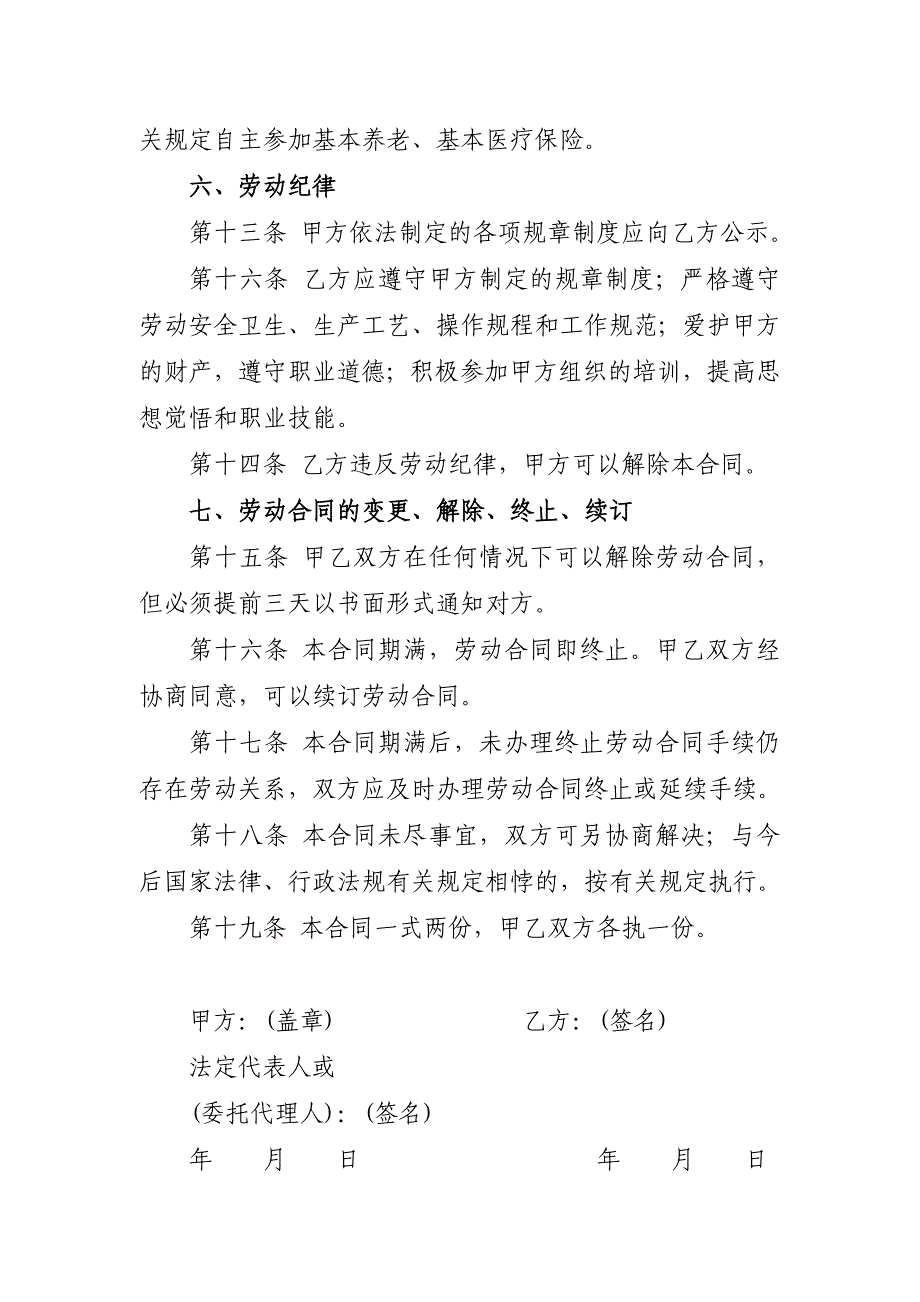 关规定自主参加基本养老、基本医疗保险。
六、劳动纪律
第十三条 甲方依法制定的各项规章制度应向乙方公示。
第十六条 乙方应遵守甲方制定的规章制度；严格遵守
劳动安全卫生、生产工艺、操作规程和工作规范；爱护甲方
的财产，遵守职业道德；积极参加甲方组织的培训，提高思
想觉悟和职业技能。
第十四条 乙方违反劳动纪律，甲方可以解除本合同。
七、劳动合同的变更、解除、终止、续订
第十五条 甲乙双方在任何情况下可以解除劳动合同，
但必须提前三天以书面形式通知对方。
第十六条 本合同期满，劳动合同即终止。甲乙双方经
协商同意，可以续订劳动合同。
第十七条 本合同期满后，未办理终止劳动合同手续仍
存在劳动关系，双方应及时办理劳动合同终止或延续手续。
第十八条 本合同未尽事宜，双方可另协商解决；与今
后国家法律、行政法规有关规定相悖的，按有关规定执行。
第十九条 本合同一式两份，甲乙双方各执一份。
甲方：(盖章) 乙方：(签名)
法定代表人或
(委托代理人)：(签名)
年 月 日 年 月 日